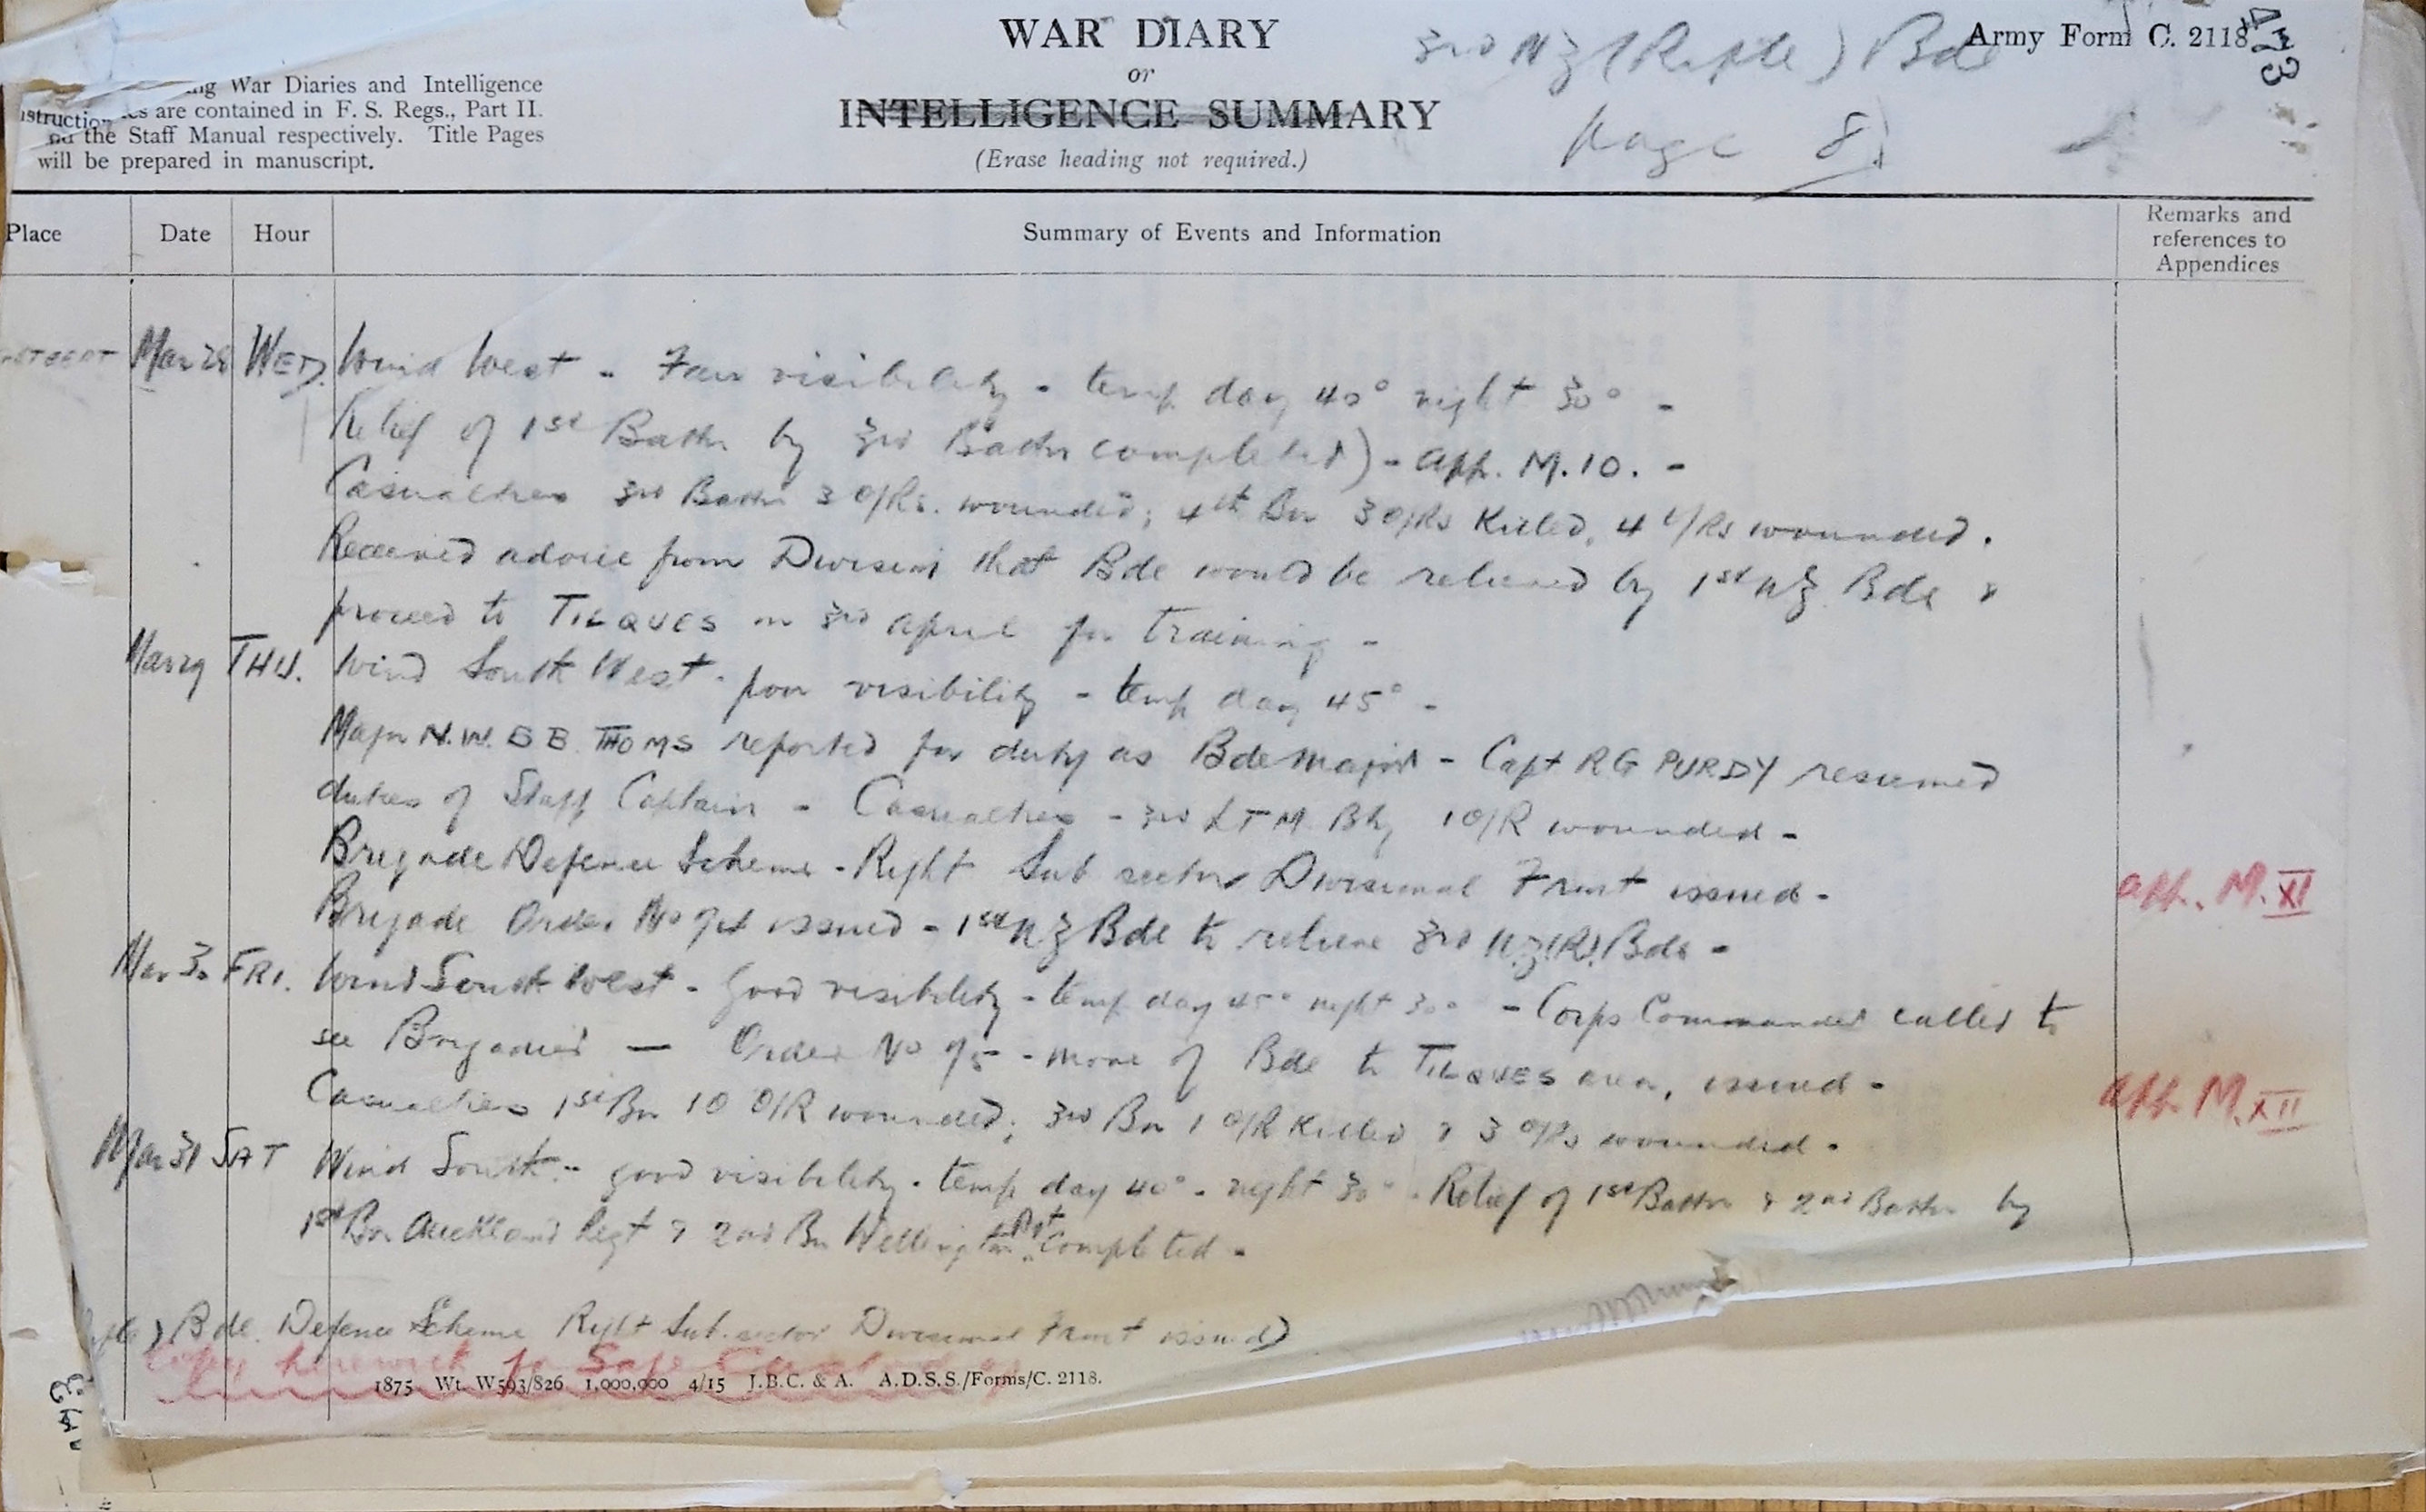 WAR DIARY
or
INTELLIGENCE SUMMARY
(Erase heading not required.)
3rd NZ (Rifle) Bde
Page 8
Army Form C. 2118
423
War Diaries and Intelligence
are contained in F. S. Regs., Part II.
the Staff Manual respectively. Title Pages
will be prepared in manuscript.
Place Date Hour Summary of Events and Information Remarks and references to Appendices
Mar 28 WED. Wind West - Fair visibility - temp day 40° night 30° -
Relief of 1st Battn by 3rd Battn completed) - App. M.10. -
Casualties 3rd Battn 3 O/Rs. wounded; 4th Bn 3 O/Rs Killed, 4 O/Rs wounded.
Received advice from Division that Bde would be relieved by 1st NZ Bde &
proceed to TILQUES on 3rd April for training -
Mar 29 THU. Wind South West - poor visibility - temp day 45° -
Major N.W.B.B. THOMS reported for duty as Bde Major - Capt RG PURDY resumed
duties of Staff Captain - Casualties - 3rd LTM Bty 1 O/R wounded -
Brigade Defence Scheme - Right Sub sector Divisional Front issued - App. M.XI
Brigade Order No 74 issued - 1st NZ Bde to relieve 3rd NZ(R) Bde -
Mar 30 FRI. Wind South West - Good visibility - temp day 45° night 30° - Corps Commander called to
see Brigadier — Order No 75 - move of Bde to TILQUES area, issued - App. M.XII
Casualties 1st Bn 10 O/R wounded; 3rd Bn 1 O/R Killed & 3 O/Rs wounded.
Mar 31 SAT Wind South - good visibility - temp day 40° - night 30° - Relief of 1st Battn & 2nd Battn by
1st Bn Auckland Regt & 2nd Bn Wellington Regt completed -
Bde. Defence Scheme Right Sub-sector Divisional Front issued)
Copy herewith for Safe Custody
1875 Wt. W593/826 1,000,000 4/15 J.B.C. & A. A.D.S.S./Forms/C. 2118.